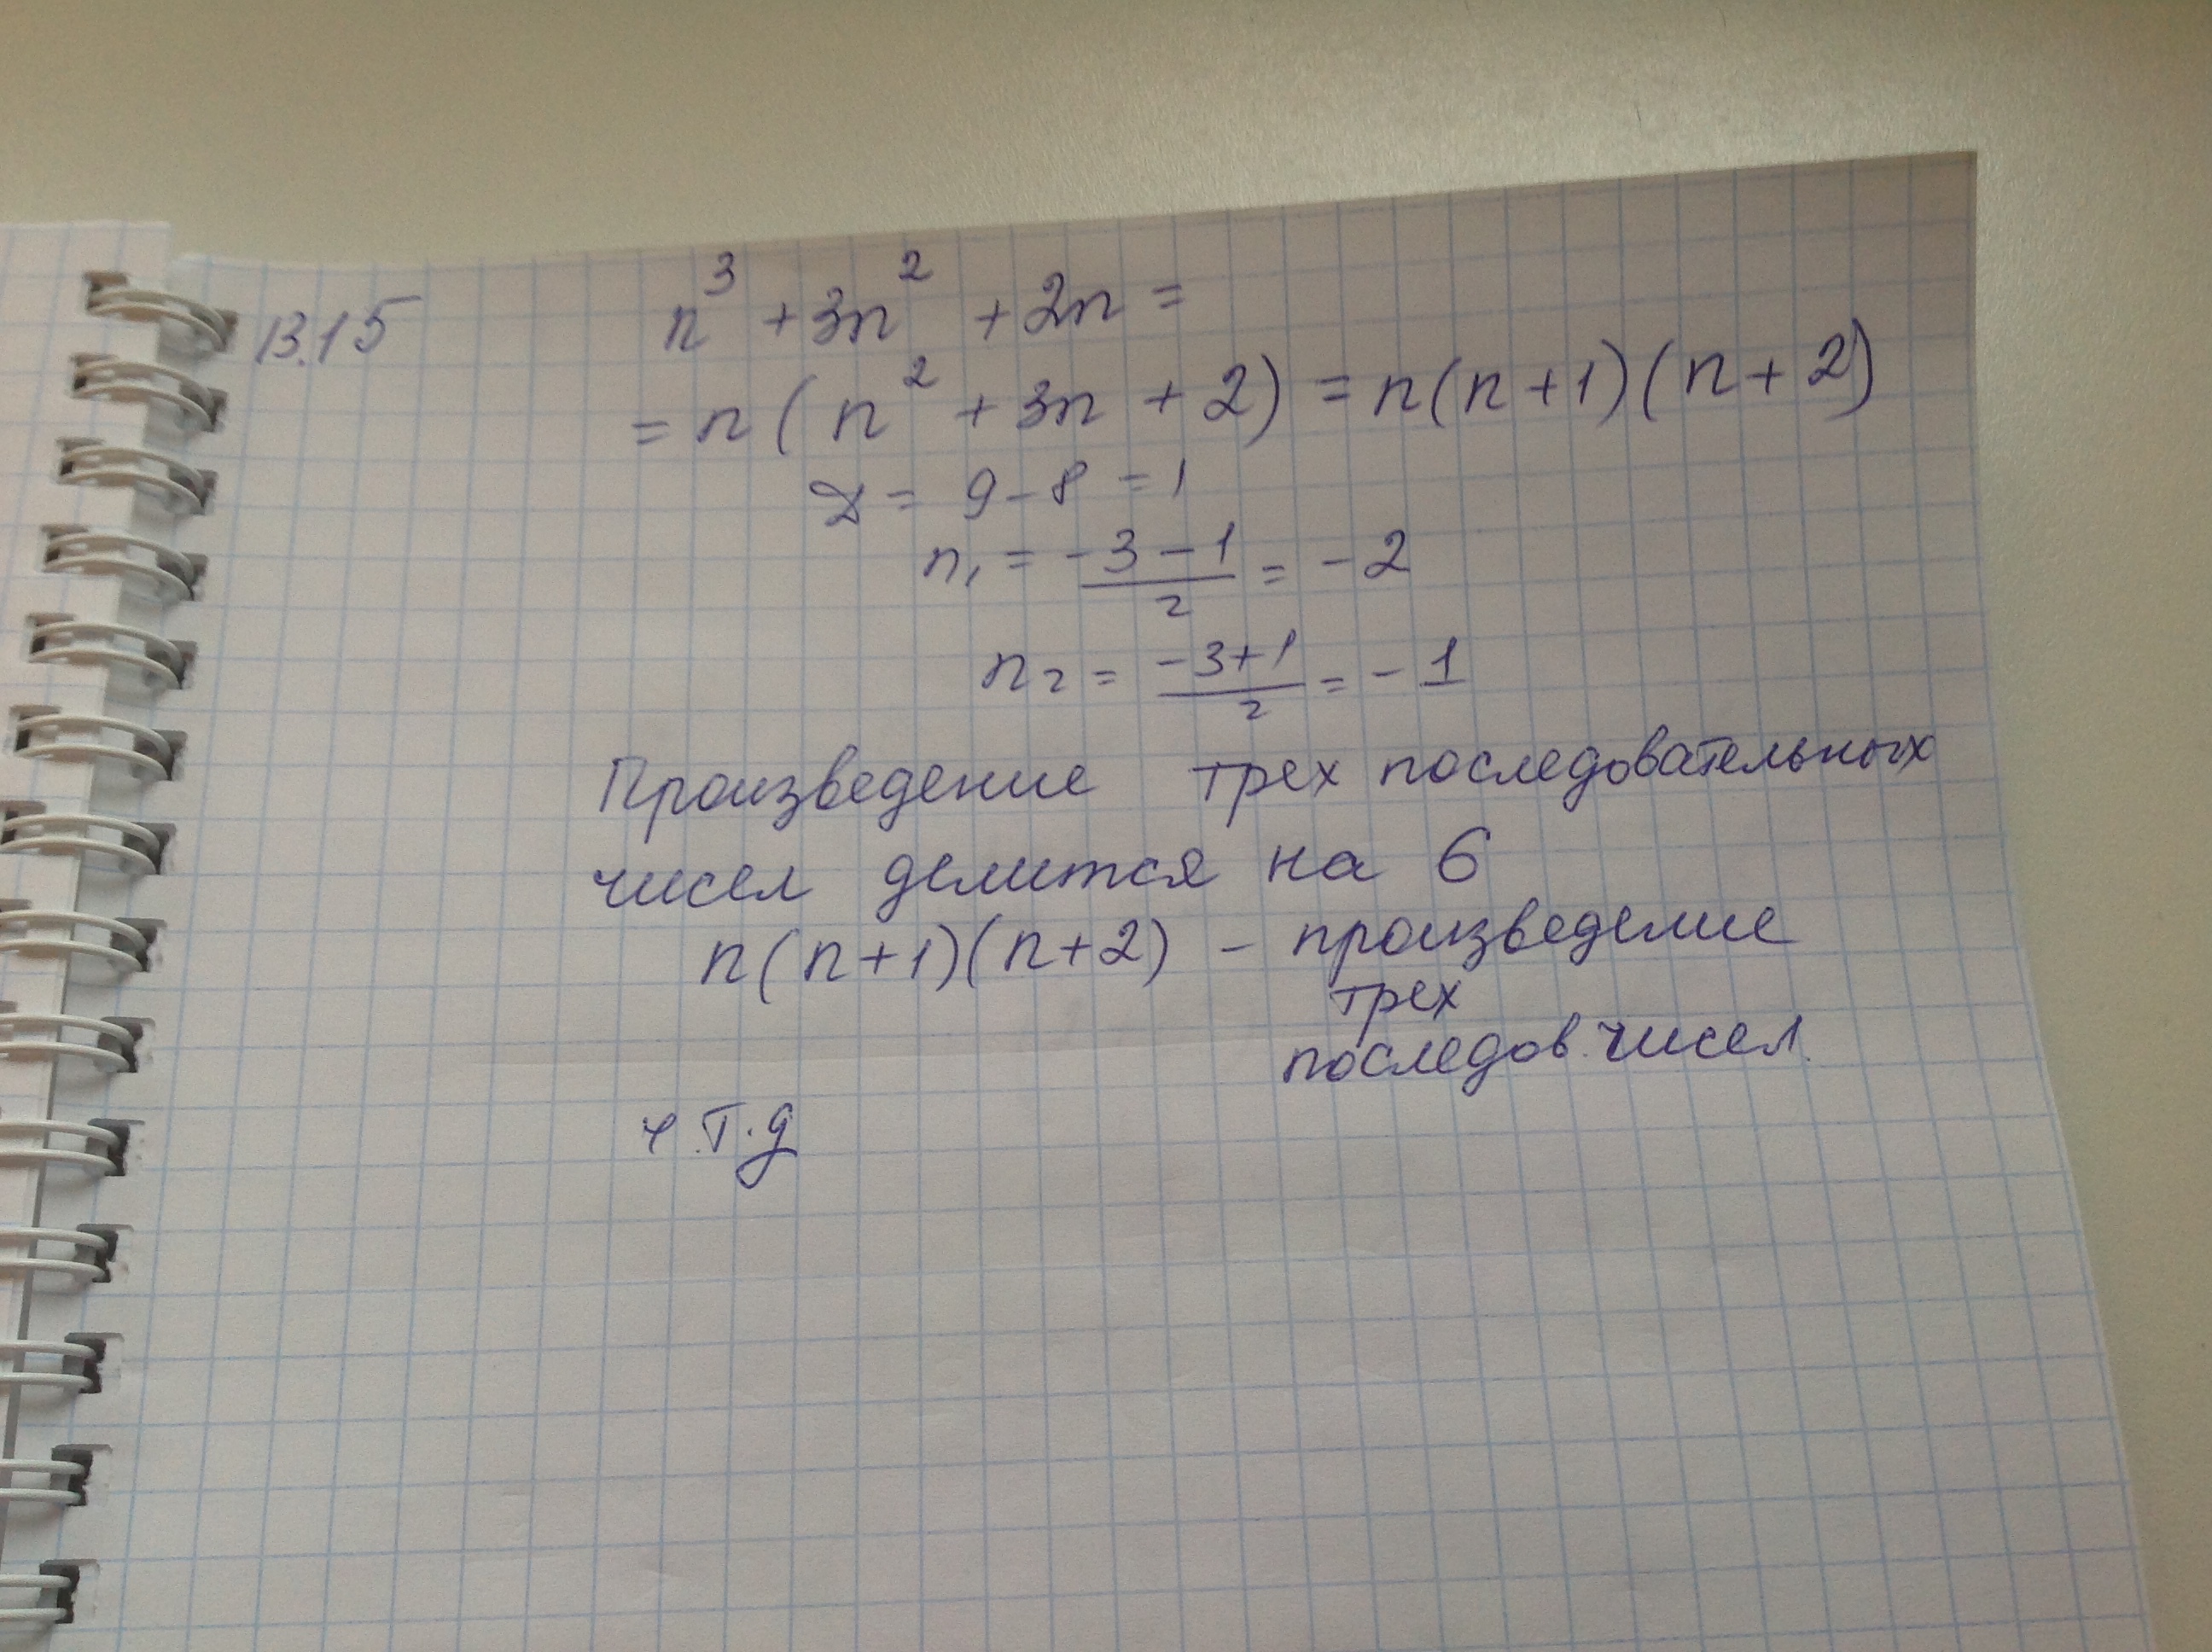 13.15
n³ + 3n² + 2n =
= n(n² + 3n + 2) = n(n+1)(n+2)
D = 9 - 8 = 1
n₁ = (-3 - 1)/2 = -2
n₂ = (-3+1)/2 = -1
Произведение трех последовательных
чисел делится на 6
n(n+1)(n+2) - произведение
трех
последов. чисел.
ч.т.д